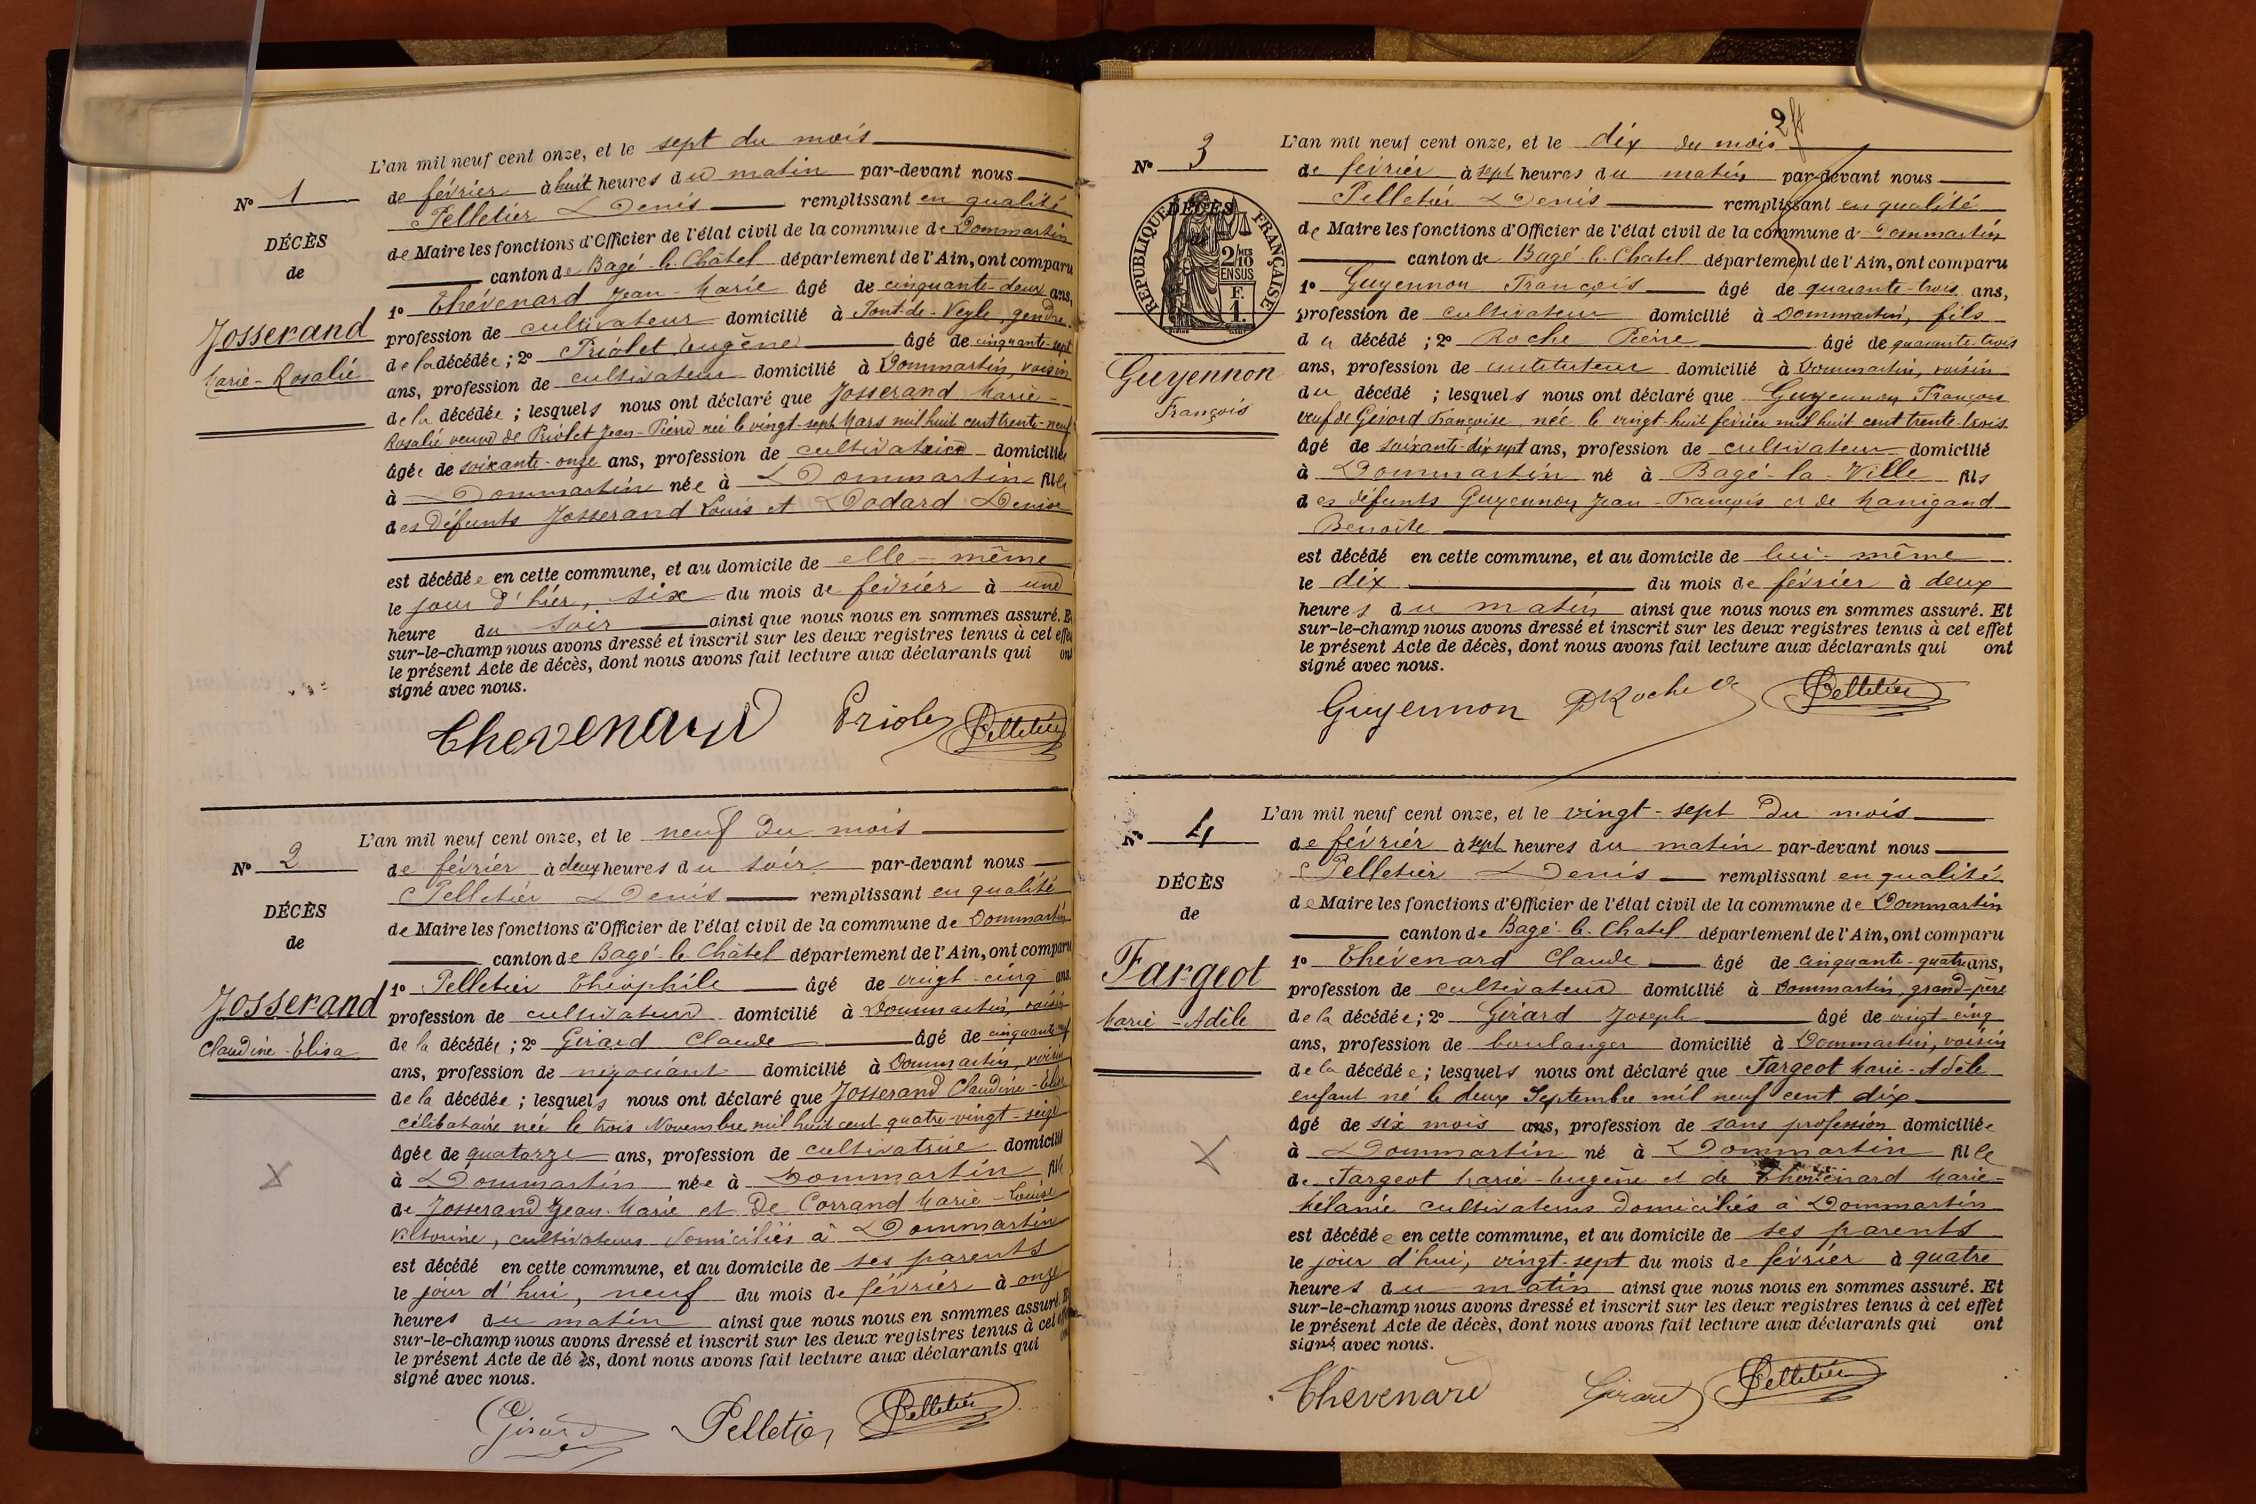 L'an mil neuf cent onze, et le sept du mois
de février à huit heures du matin par-devant nous
N° 1
Pelletier Denis remplissant en qualité
DÉCÈS
de Maire les fonctions d'Officier de l'état civil de la commune de Dommartin
de
canton de Bagé-le-Châtel département de l'Ain, ont comparu
1° Thévenard Jean-Marie âgé de cinquante-deux ans,
Josserand
profession de cultivateur domicilié à Pont-de-Veyle, gendre
Marie-Rosalie
de la décédée ; 2° Priolet Eugène âgé de cinquante-sept
ans, profession de cultivateur domicilié à Dommartin, voisin
de la décédée ; lesquels nous ont déclaré que Josserand Marie-
Rosalie veuve de Priolet Jean-Pierre née le vingt-sept Mars mil huit cent trente-neuf
âgée de soixante-onze ans, profession de cultivatrice domiciliée
à Dommartin née à Dommartin fille
des défunts Josserand Louis et Dodard Denise
est décédée en cette commune, et au domicile de elle-même
le jour d'hier, six du mois de février à une
heure du soir ainsi que nous nous en sommes assuré. Et
sur-le-champ nous avons dressé et inscrit sur les deux registres tenus à cet effet
le présent Acte de décès, dont nous avons fait lecture aux déclarants qui ont
signé avec nous.
Thevenard Priolet Pelletier
L'an mil neuf cent onze, et le neuf du mois
N° 2
de février à deux heures du soir par-devant nous
Pelletier Denis remplissant en qualité
DÉCÈS
de Maire les fonctions d'Officier de l'état civil de la commune de Dommartin
de
canton de Bagé-le-Châtel département de l'Ain, ont comparu
1° Pelletier Théophile âgé de vingt-cinq ans
Josserand
profession de cultivateur domicilié à Dommartin, voisin
Claudine-Elisa
de la décédée ; 2° Gérard Claude âgé de
ans, profession de négociant domicilié à Dommartin, voisin
de la décédée ; lesquels nous ont déclaré que Josserand Claudine-Elisa
célibataire née le trois Novembre mil huit cent quatre-vingt-seize
âgée de quatorze ans, profession de cultivatrice domicilié
à Dommartin née à Dommartin fille
de Josserand Jean-Marie et De Corrand Marie-Louise
cultivateurs domiciliés à Dommartin
est décédé en cette commune, et au domicile de ses parents
le jour d'hui, neuf du mois de février à onze
heures du matin ainsi que nous nous en sommes assuré. Et
sur-le-champ nous avons dressé et inscrit sur les deux registres tenus à cet effet
le présent Acte de dé ès, dont nous avons fait lecture aux déclarants qui ont
signé avec nous.
Girard Pelletier Pelletier
2
L'an mil neuf cent onze, et le dix du mois
N° 3
de février à sept heures du matin par-devant nous
Pelletier Denis remplissant en qualité
DÉCÈS
RÉPUBLIQUE FRANÇAISE
2/10 EN SUS
F. 1.
de Maire les fonctions d'Officier de l'état civil de la commune de Dommartin
canton de Bagé-le-Chatel département de l'Ain, ont comparu
1° Guyennon François âgé de quarante-trois ans,
profession de cultivateur domicilié à Dommartin, fils
du décédé ; 2° Roche Pierre âgé de quarante-trois
Guyennon
François
ans, profession de instituteur domicilié à Dommartin, voisin
du décédé ; lesquels nous ont déclaré que Guyennon François
veuf de Gérard Françoise née le vingt-huit février mil huit cent trente-trois
âgé de soixante-dix-sept ans, profession de cultivateur domicilié
à Dommartin né à Bagé-la-Ville fils
des défunts Guyennon Jean-François et de Manigand
Benoite
est décédé en cette commune, et au domicile de lui-même
le dix du mois de février à deux
heures du matin ainsi que nous nous en sommes assuré. Et
sur-le-champ nous avons dressé et inscrit sur les deux registres tenus à cet effet
le présent Acte de décès, dont nous avons fait lecture aux déclarants qui ont
signé avec nous.
Guyennon Roche Pelletier
L'an mil neuf cent onze, et le vingt-sept du mois
N° 4
de février à sept heures du matin par-devant nous
Pelletier Denis remplissant en qualité
DÉCÈS
de Maire les fonctions d'Officier de l'état civil de la commune de Dommartin
de
canton de Bagé-le-Chatel département de l'Ain, ont comparu
1° Thévenard Claude âgé de cinquante-quatre ans,
Fargeot
profession de cultivateur domicilié à Dommartin, grand-père
Marie-Adèle
de la décédée ; 2° Gérard Joseph âgé de vingt-cinq
ans, profession de boulanger domicilié à Dommartin, voisin
de la décédée ; lesquels nous ont déclaré que Fargeot Marie-Adèle
enfant né le deux Septembre mil neuf cent dix
âgé de six mois ans, profession de sans profession domiciliée
à Dommartin né à Dommartin fille
de Fargeot Marie-Eugène et de Thévenard Marie-
Mélanie cultivateurs domiciliés à Dommartin
est décédée en cette commune, et au domicile de ses parents
le jour d'hui, vingt-sept du mois de février à quatre
heures du matin ainsi que nous nous en sommes assuré. Et
sur-le-champ nous avons dressé et inscrit sur les deux registres tenus à cet effet
le présent Acte de décès, dont nous avons fait lecture aux déclarants qui ont
signé avec nous.
Thevenard Girard Pelletier